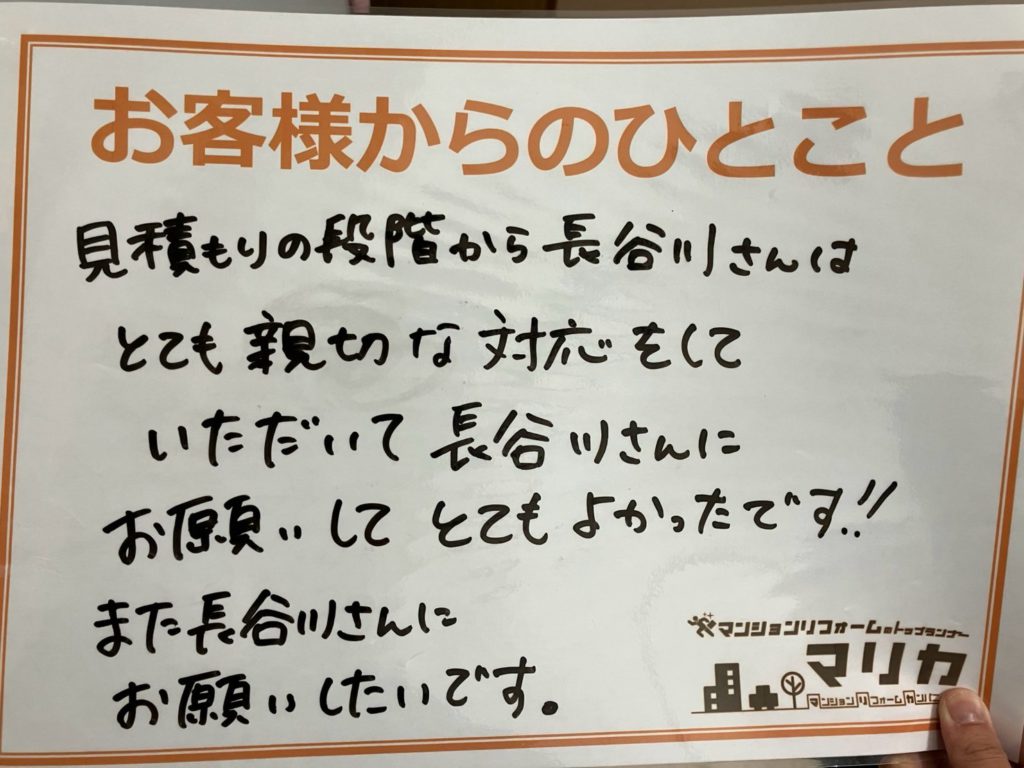 お客様からのひとこと
見積もりの段階から長谷川さんは
とても親切な対応をして
いただいて長谷川さんに
お願いしてとてもよかったです!!
また長谷川さんに
お願いしたいです。
マンションリフォームのトップランナー
マリカ
マンションリフォームカン